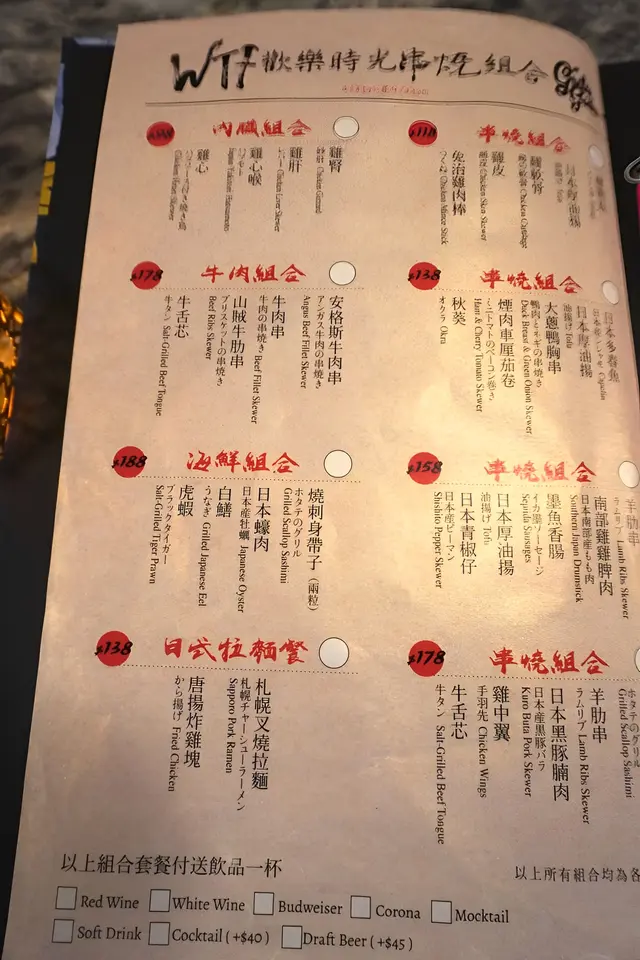 WTF歡樂時光串燒組合
內臟組合
雞腎
雞肝
雞心喉
雞心
$118 串燒組合
日本厚油揚
雞軟骨
雞皮
Chicken Skin Skewer
免治雞肉棒
つくね Chicken Mince Stick
$178 牛肉組合
安格斯牛肉串
アンガス牛肉の串焼き
Angus Beef Fillet Skewer
牛肉串
牛肉の串焼き Beef Fillet Skewer
山賊牛肋串
ブリスケットの串焼き
Beef Ribs Skewer
牛舌芯
牛タン Salt-Grilled Beef Tongue
$138 串燒組合
日本多春魚
日本厚油揚
油揚げ Tofu
大蔥鴨胸串
鴨肉とネギの串焼き
Duck Breast & Green Onion Skewer
煙肉車厘茄卷
ミニトマトのベーコン巻き
Ham & Cherry Tomato Skewer
秋葵
オクラ Okra
$188 海鮮組合
燒刺身帶子（兩粒）
ホタテのグリル
Grilled Scallop Sashimi
日本蠔肉
日本産牡蠣 Japanese Oyster
白鱔
うなぎ Grilled Japanese Eel
虎蝦
ブラックタイガー
Salt-Grilled Tiger Prawn
$158 串燒組合
羊肋串
ラムリブ Lamb Ribs Skewer
南部雞雞脾肉
日本南部産もも肉
Southern Japan Drumstick
墨魚香腸
イカ墨ソーセージ
Sepiida Sausages
日本厚油揚
油揚げ Tofu
日本青椒仔
日本産ピーマン
Shishito Pepper Skewer
$138 日式拉麵餐
札幌叉燒拉麵
札幌チャーシューラーメン
Sapporo Pork Ramen
唐揚炸雞塊
から揚げ Fried Chicken
$178 串燒組合
ホタテのグリル
Grilled Scallop Sashimi
羊肋串
ラムリブ Lamb Ribs Skewer
日本黑豚腩肉
日本産黒豚バラ
Kuro Buta Pork Skewer
雞中翼
手羽先 Chicken Wings
牛舌芯
牛タン Salt-Grilled Beef Tongue
以上組合套餐付送飲品一杯
以上所有組合均為各
Red Wine White Wine Budweiser Corona Mocktail
Soft Drink Cocktail (+$40) Draft Beer (+$45)